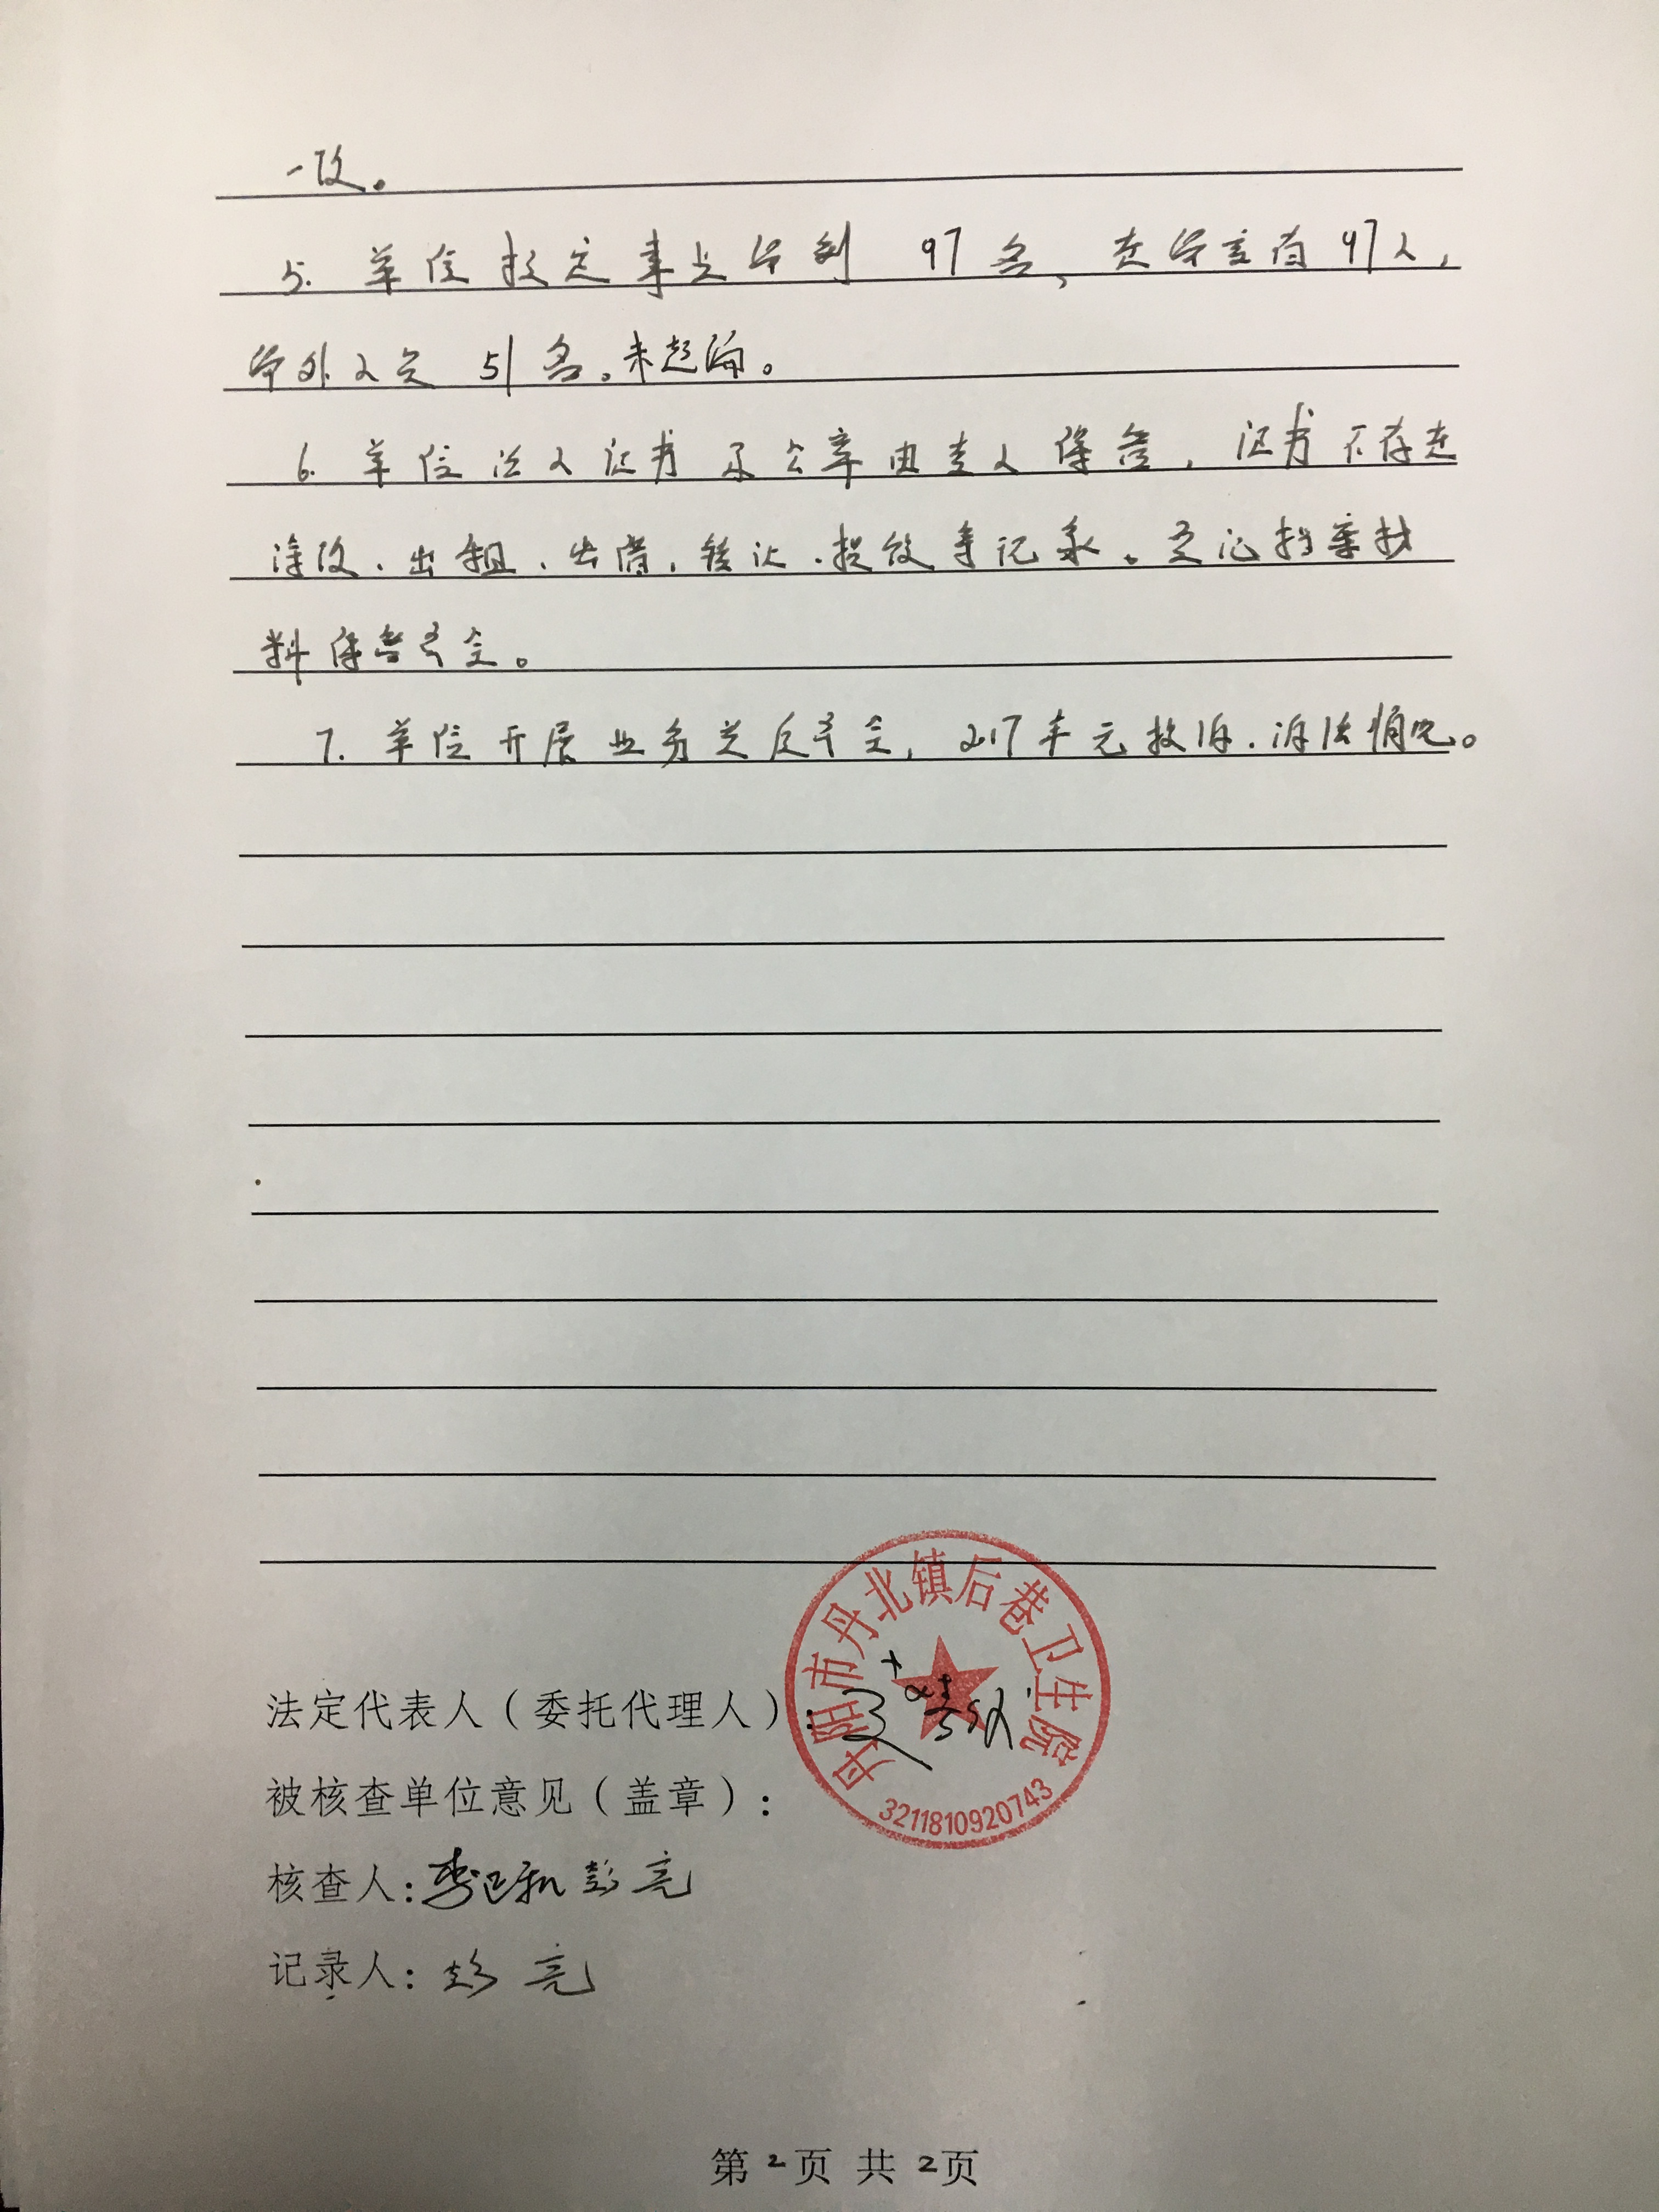 一致。
5. 单位核定事业编制 97名、在编实有47人,
编外人员 51名。未超编。
6. 单位法人证书及公章由专人保管, 证书不存在
涂改、出租、出借、转让、损毁等记录。登记档案材
料保管齐全。
7. 单位开展业务资质齐全, 2017年无投诉、诉讼情况。
丹阳市丹北镇后巷卫生院
3211810920743
法定代表人(委托代理人):
被核查单位意见(盖章):
核查人: 彭亮
记录人: 彭亮
第2页 共2页